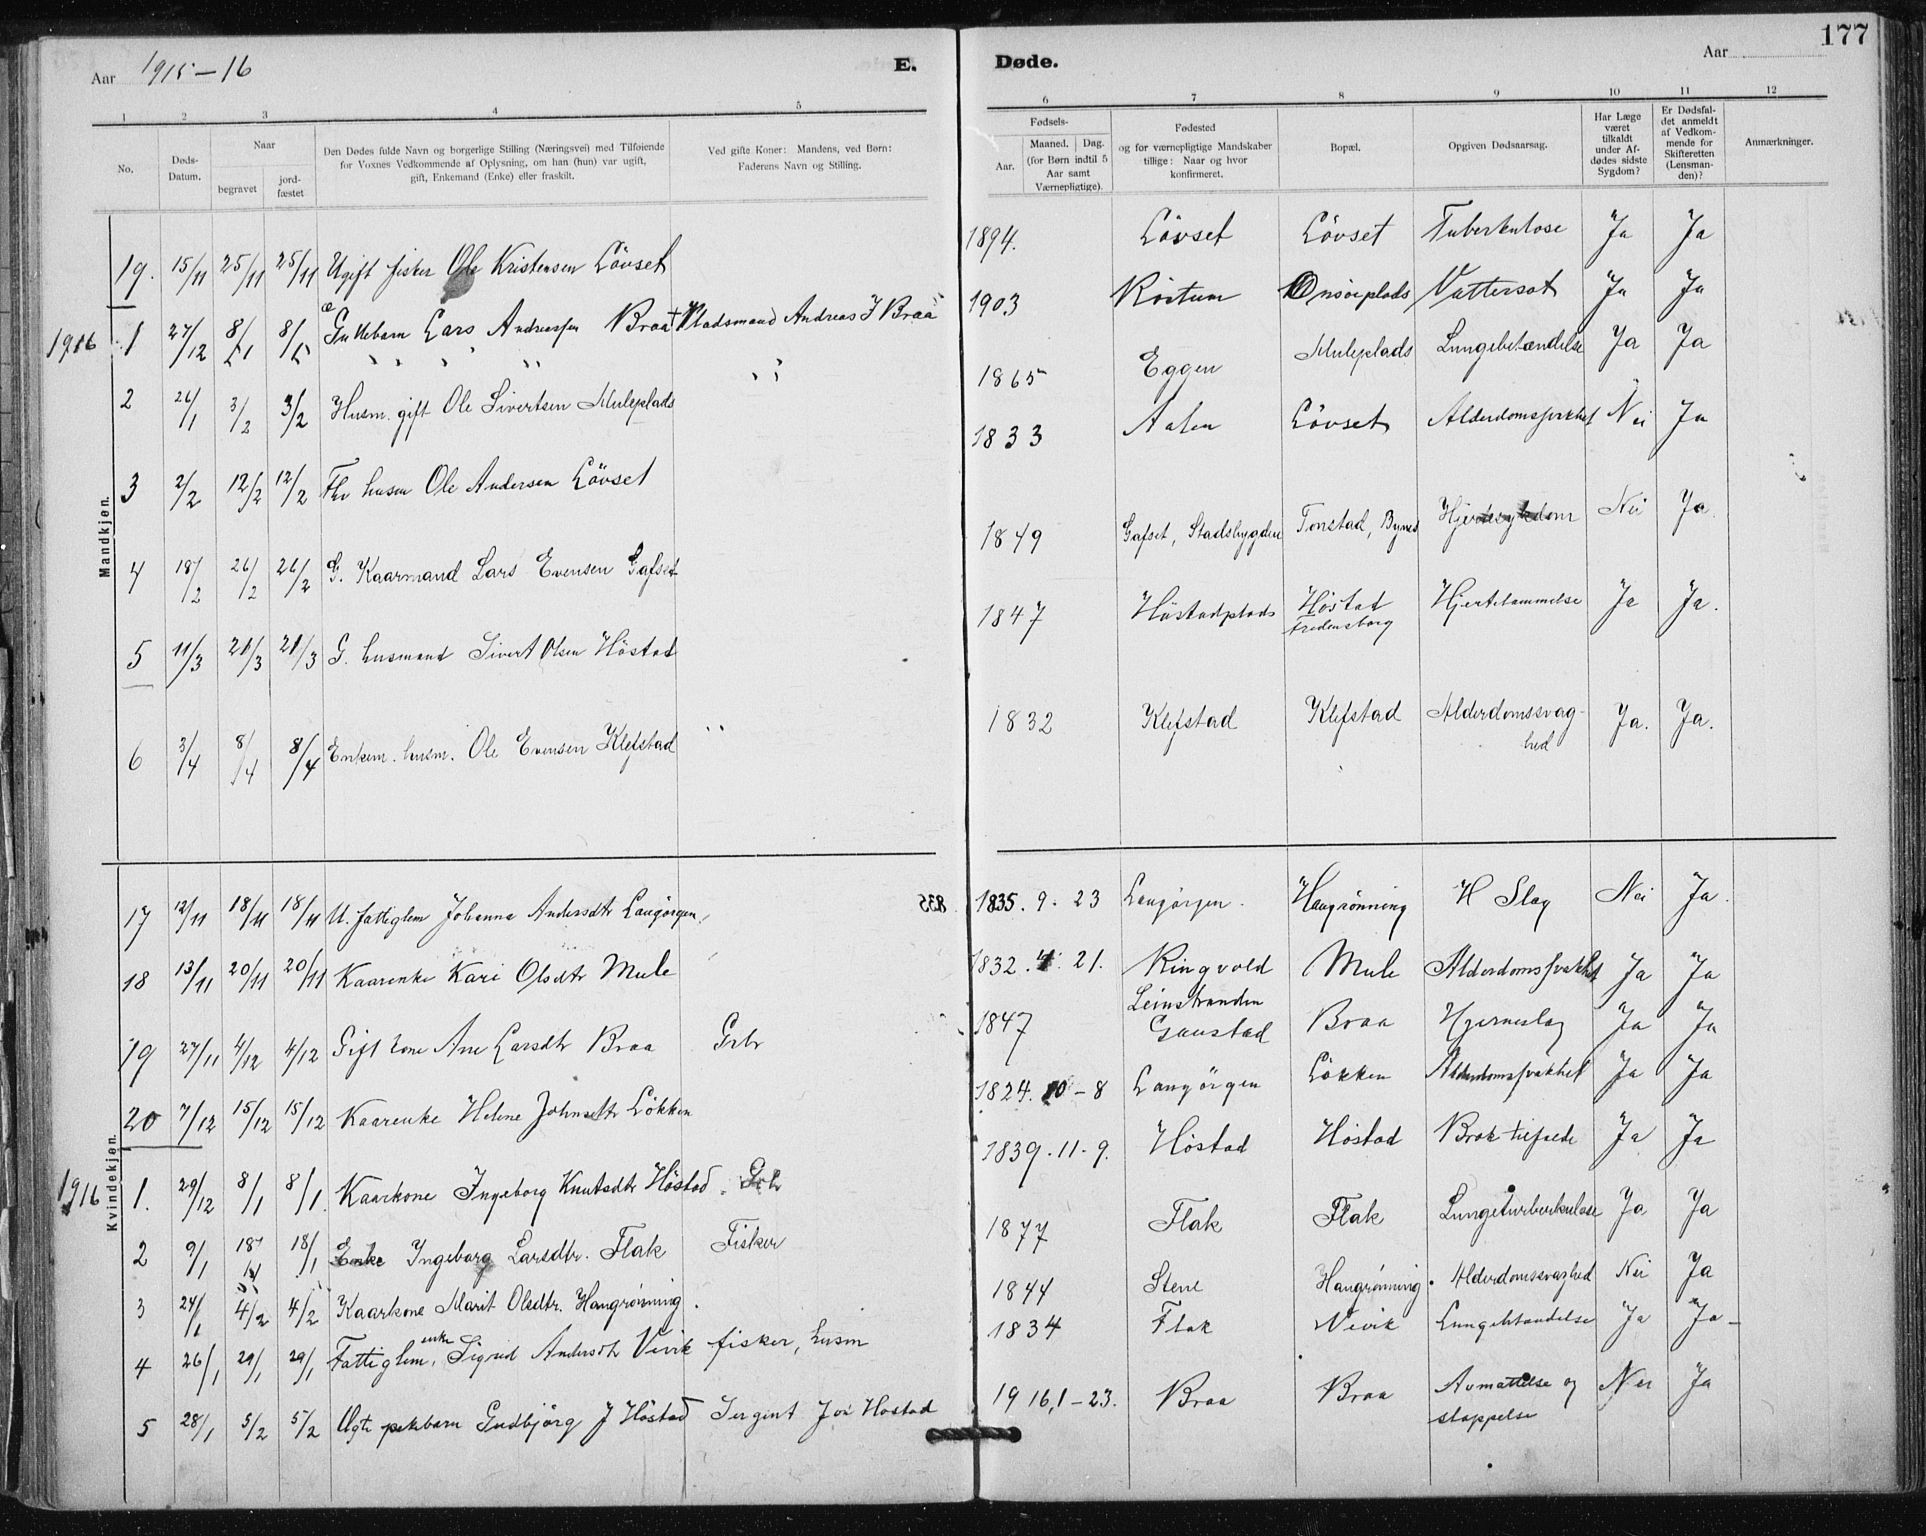 177
Aar 1915–16 E. Døde. Aar
1 2 3 4 5 6 7 8 9 10 11 12
No. Døds-Datum. Naar begravet jordfæstet
Den Dødes fulde Navn og borgerlige Stilling (Næringsvei) med Tilføiende for Voxnes Vedkommende af Oplysning, om han (hun) var ugift, gift, Enkemand (Enke) eller fraskilt.
Ved gifte Koner: Mandens, ved Børn: Faderens Navn og Stilling.
Fødsels- Aar. Maaned. Dag. (for Børn indtil 5 Aar samt Værnepligtige).
Fødested og for værnepligtige Mandskaber tillige: Naar og hvor konfirmeret.
Bopæl.
Opgiven Dødsaarsag.
Har Læge været tilkaldt under Afdødes sidste Sygdom?
Er Dødsfaldet anmeldt af Vedkommende for Skifteretten (Lensmanden)?
Anmærkninger.
Mandkjøn.
19. 15/11 25/11 25/11 Ugift fisker Ole Kristensen Lövset 1894. Lövset Lövset Tuberkulose Ja Ja
1916 1 27/12 8/1 8/1 Lars Andreassen Braa Pladsmand Andreas J Braa 1903 Röstum Vattersot Ja Ja
2 26/1 3/2 3/2 Husm. gift Ole Sivertsen Muleplads 1865 Eggen Muleplads Lungebetændelse Ja Ja
3 2/2 12/2 12/2 Fhv husm Ole Andersen Lövset 1833 Aalen Lövset Alderdomssvakhet Nei Ja
4 18/2 26/2 26/2 G. Kaarmand Lars Evensen Gafset 1849 Gafset, Stadsbygden Tonstad, Bynes Hjertesykdom Nei Ja.
5 11/3 21/3 21/3 G. husmand Sivert Olsen Höstad 1847 Höstadplads Höstad Fredensborg Hjertelammelse Ja Ja.
6 3/4 8/4 8/4 Enkem. husm. Ole Evensen Klefstad 1832 Klefstad Klefstad Alderdomssvaghed Ja. Ja.
Kvindekjøn.
17 12/11 18/11 18/11 U. fattiglem Johanna Andersdtr Langörgen 1835. 9. 23 Langörgen. Haugrönning H Slag Nei Ja.
18 13/11 20/11 20/11 Kaarenke Kari Olsdtr Mule 1832. 4. 21. Ringvold Mule Alderdomssvakhet Ja Ja
19 27/11 4/12 4/12 Gift kone Ane Larsdtr Braa Grbr 1847 Leinstranden Gaustad Braa Hjerneslag Ja Ja
20 7/12 15/12 15/12 Kaarenke Helene Johnsdtr Lökken 1824. 10–8 Langörgen Lökken Alderdomssvakhet Ja Ja
1916 1. 29/12 8/1 8/1. Kaarkone Ingeborg Knutsdtr Höstad. 1839. 11. 9. Höstad Höstad Brok tilfælde Ja Ja
2 9/1 18/1 18/1 Enke Ingeborg Larsdtr. Flak Fisker 1877 Flak Flak Lungetuberkulose Ja Ja
3 24/1 4/2 4/2 Kaarkone Marit Olsdtr. Haugrönning. 1844 Stene Haugrönning. Alderdomssvaghed Nei Ja
4 26/1 29/1 29/1 Fattiglem, enke Sigrid Andersdtr Vivik fisker, husm 1834 Flak Vivik Lungebetændelse Ja Ja–
5 28/1 5/2 5/2 Ægte pikebarn Gudbjörg J Höstad Sergent Höstad 1916, 1–23. Braa Braa Avmattelse og slappelse Nei Ja